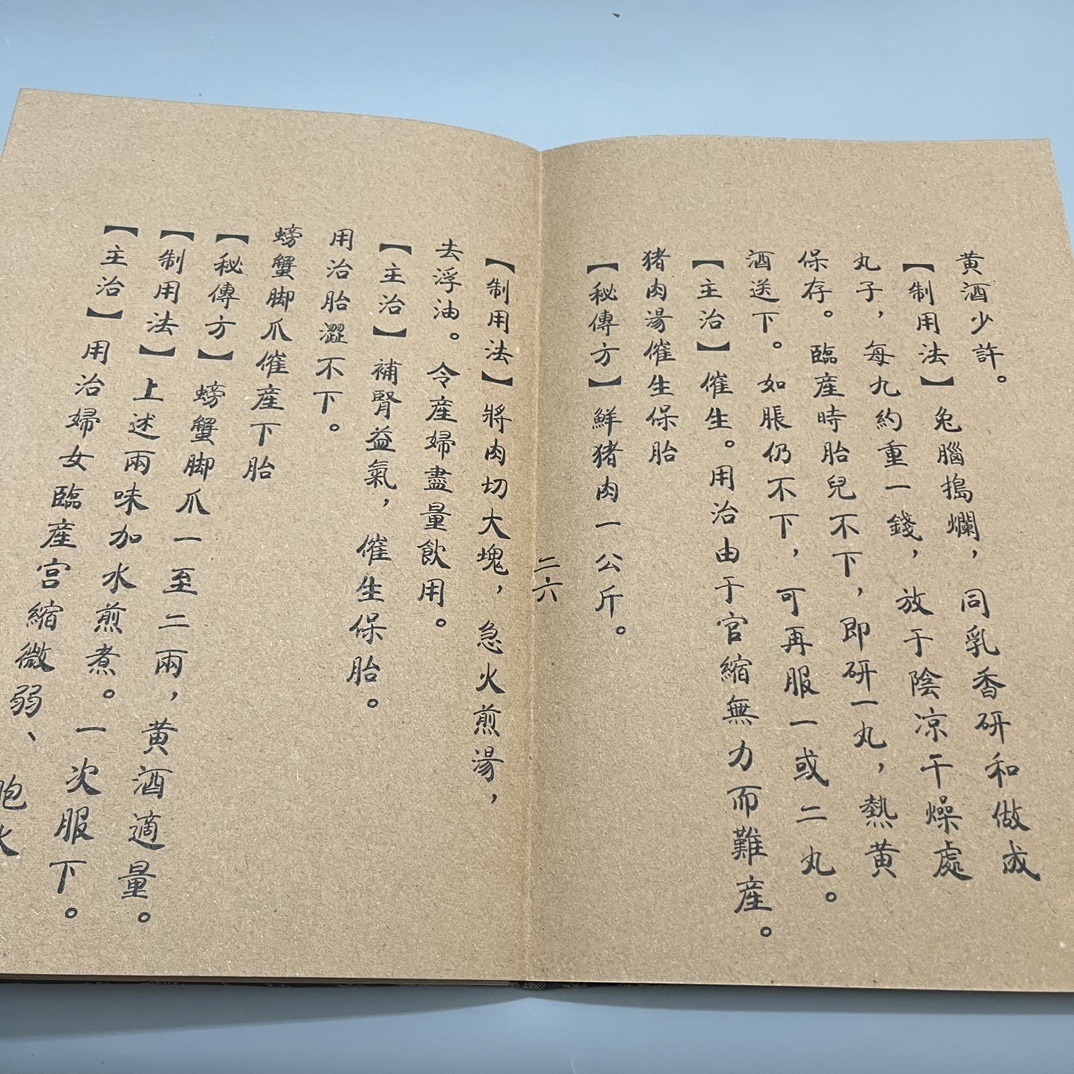 黄酒少許。
【制用法】兔腦搗爛，同乳香研和做成
丸子，每九約重一錢，放于陰凉干燥處
保存。臨産時胎兒不下，即研一丸，熱黄
酒送下。如脹仍不下，可再服一或二丸。
【主治】催生。用治由于官縮無力而難産。
猪肉湯催生保胎
【秘傳方】鮮猪肉一公斤。
二六
【制用法】將肉切大塊，急火煎湯，
去浮油。令産婦盡量飲用。
【主治】補腎益氣，催生保胎。
用治胎澀不下。
螃蟹脚爪催産下胎
【秘傳方】螃蟹脚爪一至二兩，黄酒適量。
【制用法】上述兩味加水煎煮。一次服下。
【主治】用治婦女臨産宫縮微弱、